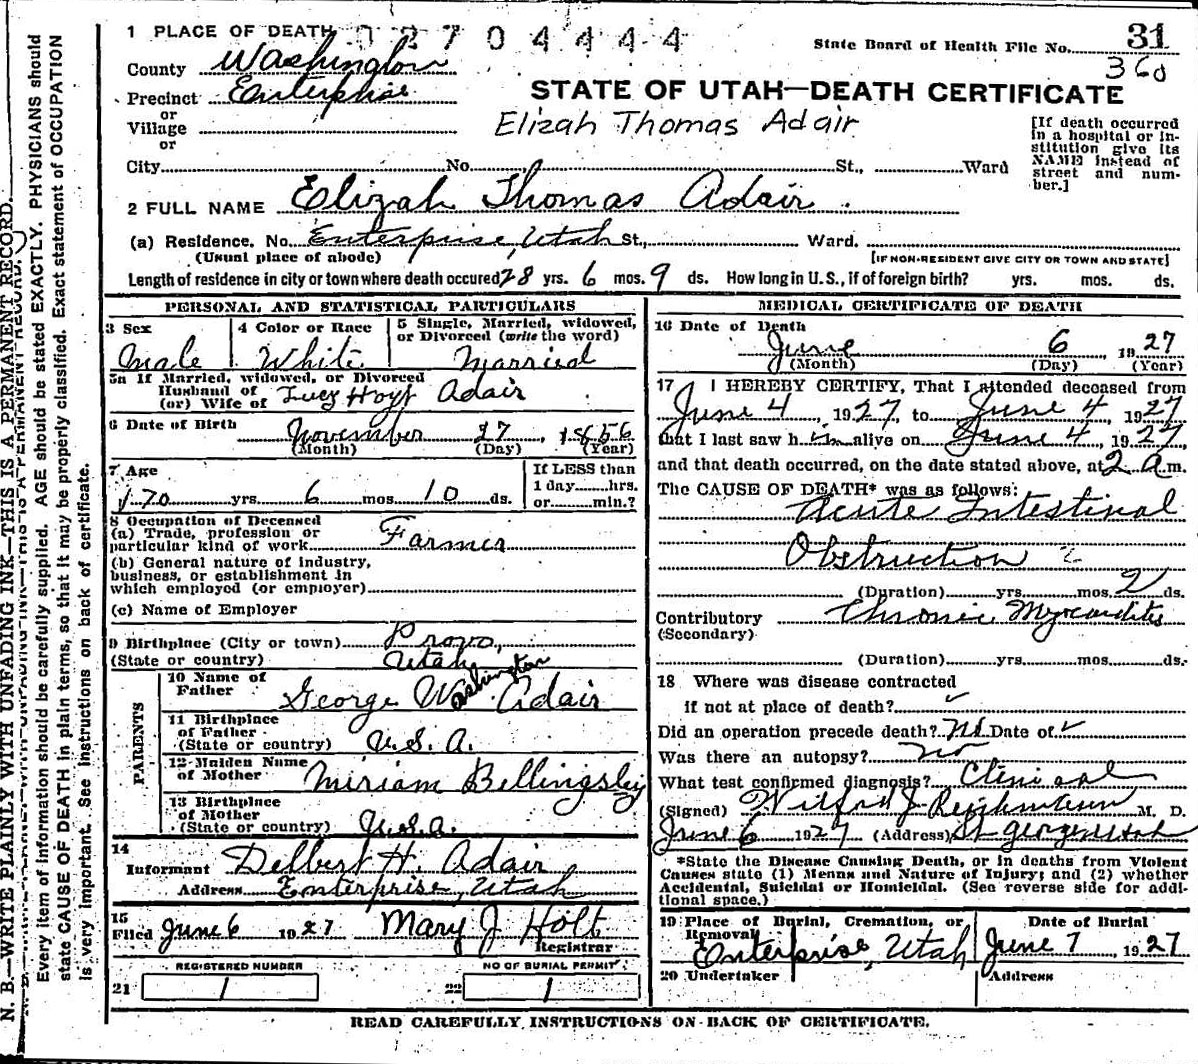 1 PLACE OF DEATH 02704444
State Board of Health File No. 31
360
County Washington
Precinct Enterprise
or
Village
or
STATE OF UTAH—DEATH CERTIFICATE
Elizah Thomas Adair
[If death occurred in a hospital or institution give its NAME instead of street and number.]
City No. St., Ward
2 FULL NAME Elizah Thomas Adair
(a) Residence. No. Enterprise, Utah St., Ward.
(Usual place of abode) [IF NON-RESIDENT GIVE CITY OR TOWN AND STATE]
Length of residence in city or town where death occured 28 yrs. 6 mos. 9 ds. How long in U. S., if of foreign birth? yrs. mos. ds.
PERSONAL AND STATISTICAL PARTICULARS
3 Sex Male
4 Color or Race White
5 Single, Married, widowed, or Divorced (write the word) Married
5a If Married, widowed, or Divorced
Husband of
(or) Wife of Lucy Hoyt Adair
6 Date of Birth November 27, 1856
(Month) (Day) (Year)
7 Age
70 yrs. 6 mos 10 ds.
If LESS than
1 day hrs.
or min.?
8 Occupation of Deceased
(a) Trade, profession or
particular kind of work Farmer
(b) General nature of industry,
business, or establishment in
which employed (or employer)
(c) Name of Employer
9 Birthplace (City or town) Provo,
(State or country) Utah
PARENTS
10 Name of
Father George Washington Adair
11 Birthplace
of Father
(State or country) U.S.A.
12 Maiden Name
of Mother Miriam Bellingsley
13 Birthplace
of Mother
(State or country) U.S.A.
14
Informant Delbert H. Adair
Address Enterprise, Utah
15
Filed June 6 1927 Mary J Holt
Registrar
REGISTERED NUMBER NO OF BURIAL PERMIT
21 1 22 1
MEDICAL CERTIFICATE OF DEATH
16 Date of Death
June 6, 1927
(Month) (Day) (Year)
17 I HEREBY CERTIFY, That I attended deceased from
June 4, 1927, to June 4, 1927
that I last saw him alive on June 4, 1927,
and that death occurred, on the date stated above, at 2 a.m.
The CAUSE OF DEATH* was as follows:
Acute Intestinal
Obstruction
(Duration) yrs. mos. 2 ds.
Contributory Chronic Myocarditis
(Secondary)
(Duration) yrs. mos. ds.
18 Where was disease contracted
if not at place of death?
Did an operation precede death? No Date of
Was there an autopsy? No
What test confirmed diagnosis? Clinical
(Signed) Wilford J Reichmann M. D.
June 6 1927 (Address) St George Utah
*State the Disease Causing Death, or in deaths from Violent
Causes state (1) Menns and Nature of Injury; and (2) whether
Accidental, Suicidal or Homicidal. (See reverse side for addi-
tional space.)
19 Place of Burial, Cremation, or
Removal Enterprise, Utah
Date of Burial
June 7, 1927
20 Undertaker
Address
READ CAREFULLY INSTRUCTIONS ON BACK OF CERTIFICATE.
N. B.—WRITE PLAINLY WITH UNFADING INK—THIS IS A PERMANENT RECORD.
Every item of information should be carefully supplied. AGE should be stated EXACTLY. PHYSICIANS should
state CAUSE OF DEATH in plain terms, so that it may be properly classified. Exact statement of OCCUPATION
is very important. See instructions on back of certificate.